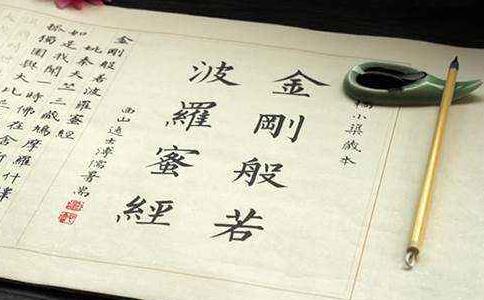 藏本
金剛般若
波羅蜜經
西山逸士溥儒
金剛般若波羅蜜經
姚秦天竺三藏鳩摩羅什
如是我聞一時佛在舍
孤獨園與大比